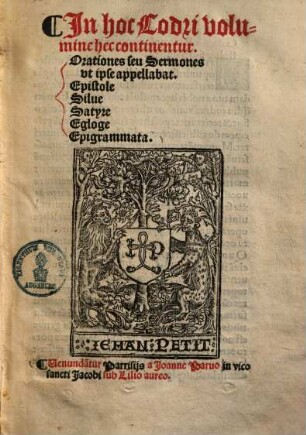 ¶In hoc Codri volu-
mine hec continentur.
Orationes seu Sermones
vt ipse appellabat.
Epistole
Silue
Satyre
Egloge
Epigrammata.
HP
IEHAN PETIT
¶Uenundātur Parrisijs a Joanne Paruo in vico
sancti Jacobi sub Lilio aureo.